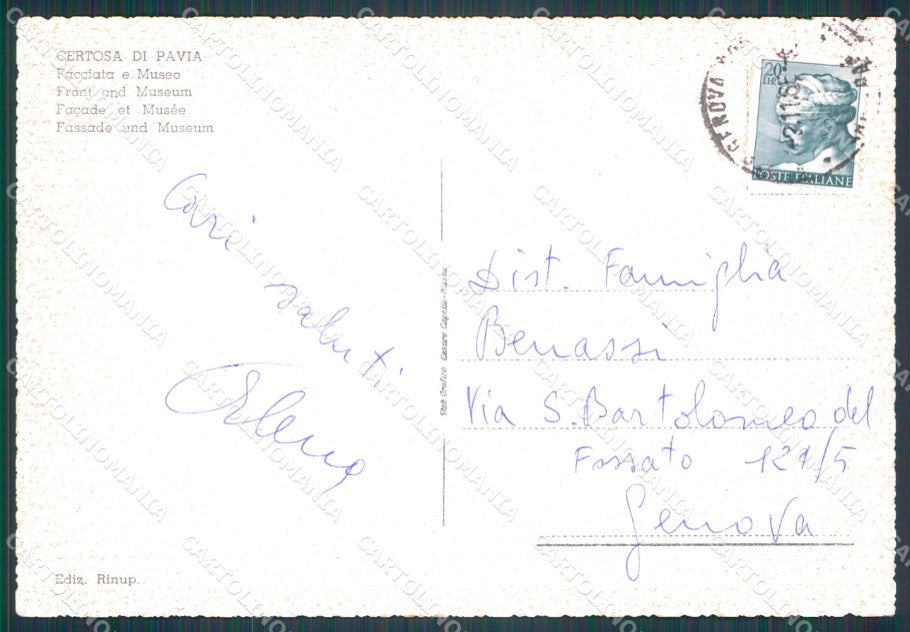 CERTOSA DI PAVIA
Facciata e Museo
Front and Museum
Façade et Musée
Fassade und Museum
Cari
saluti
Elena
Ediz. Rinup.
GENOVA
20
LIRE
POSTE ITALIANE
Dist. Famiglia
Benassi
Via S. Bartolomeo del
Fossato 121/5
Genova
CARTOLINOMANIA